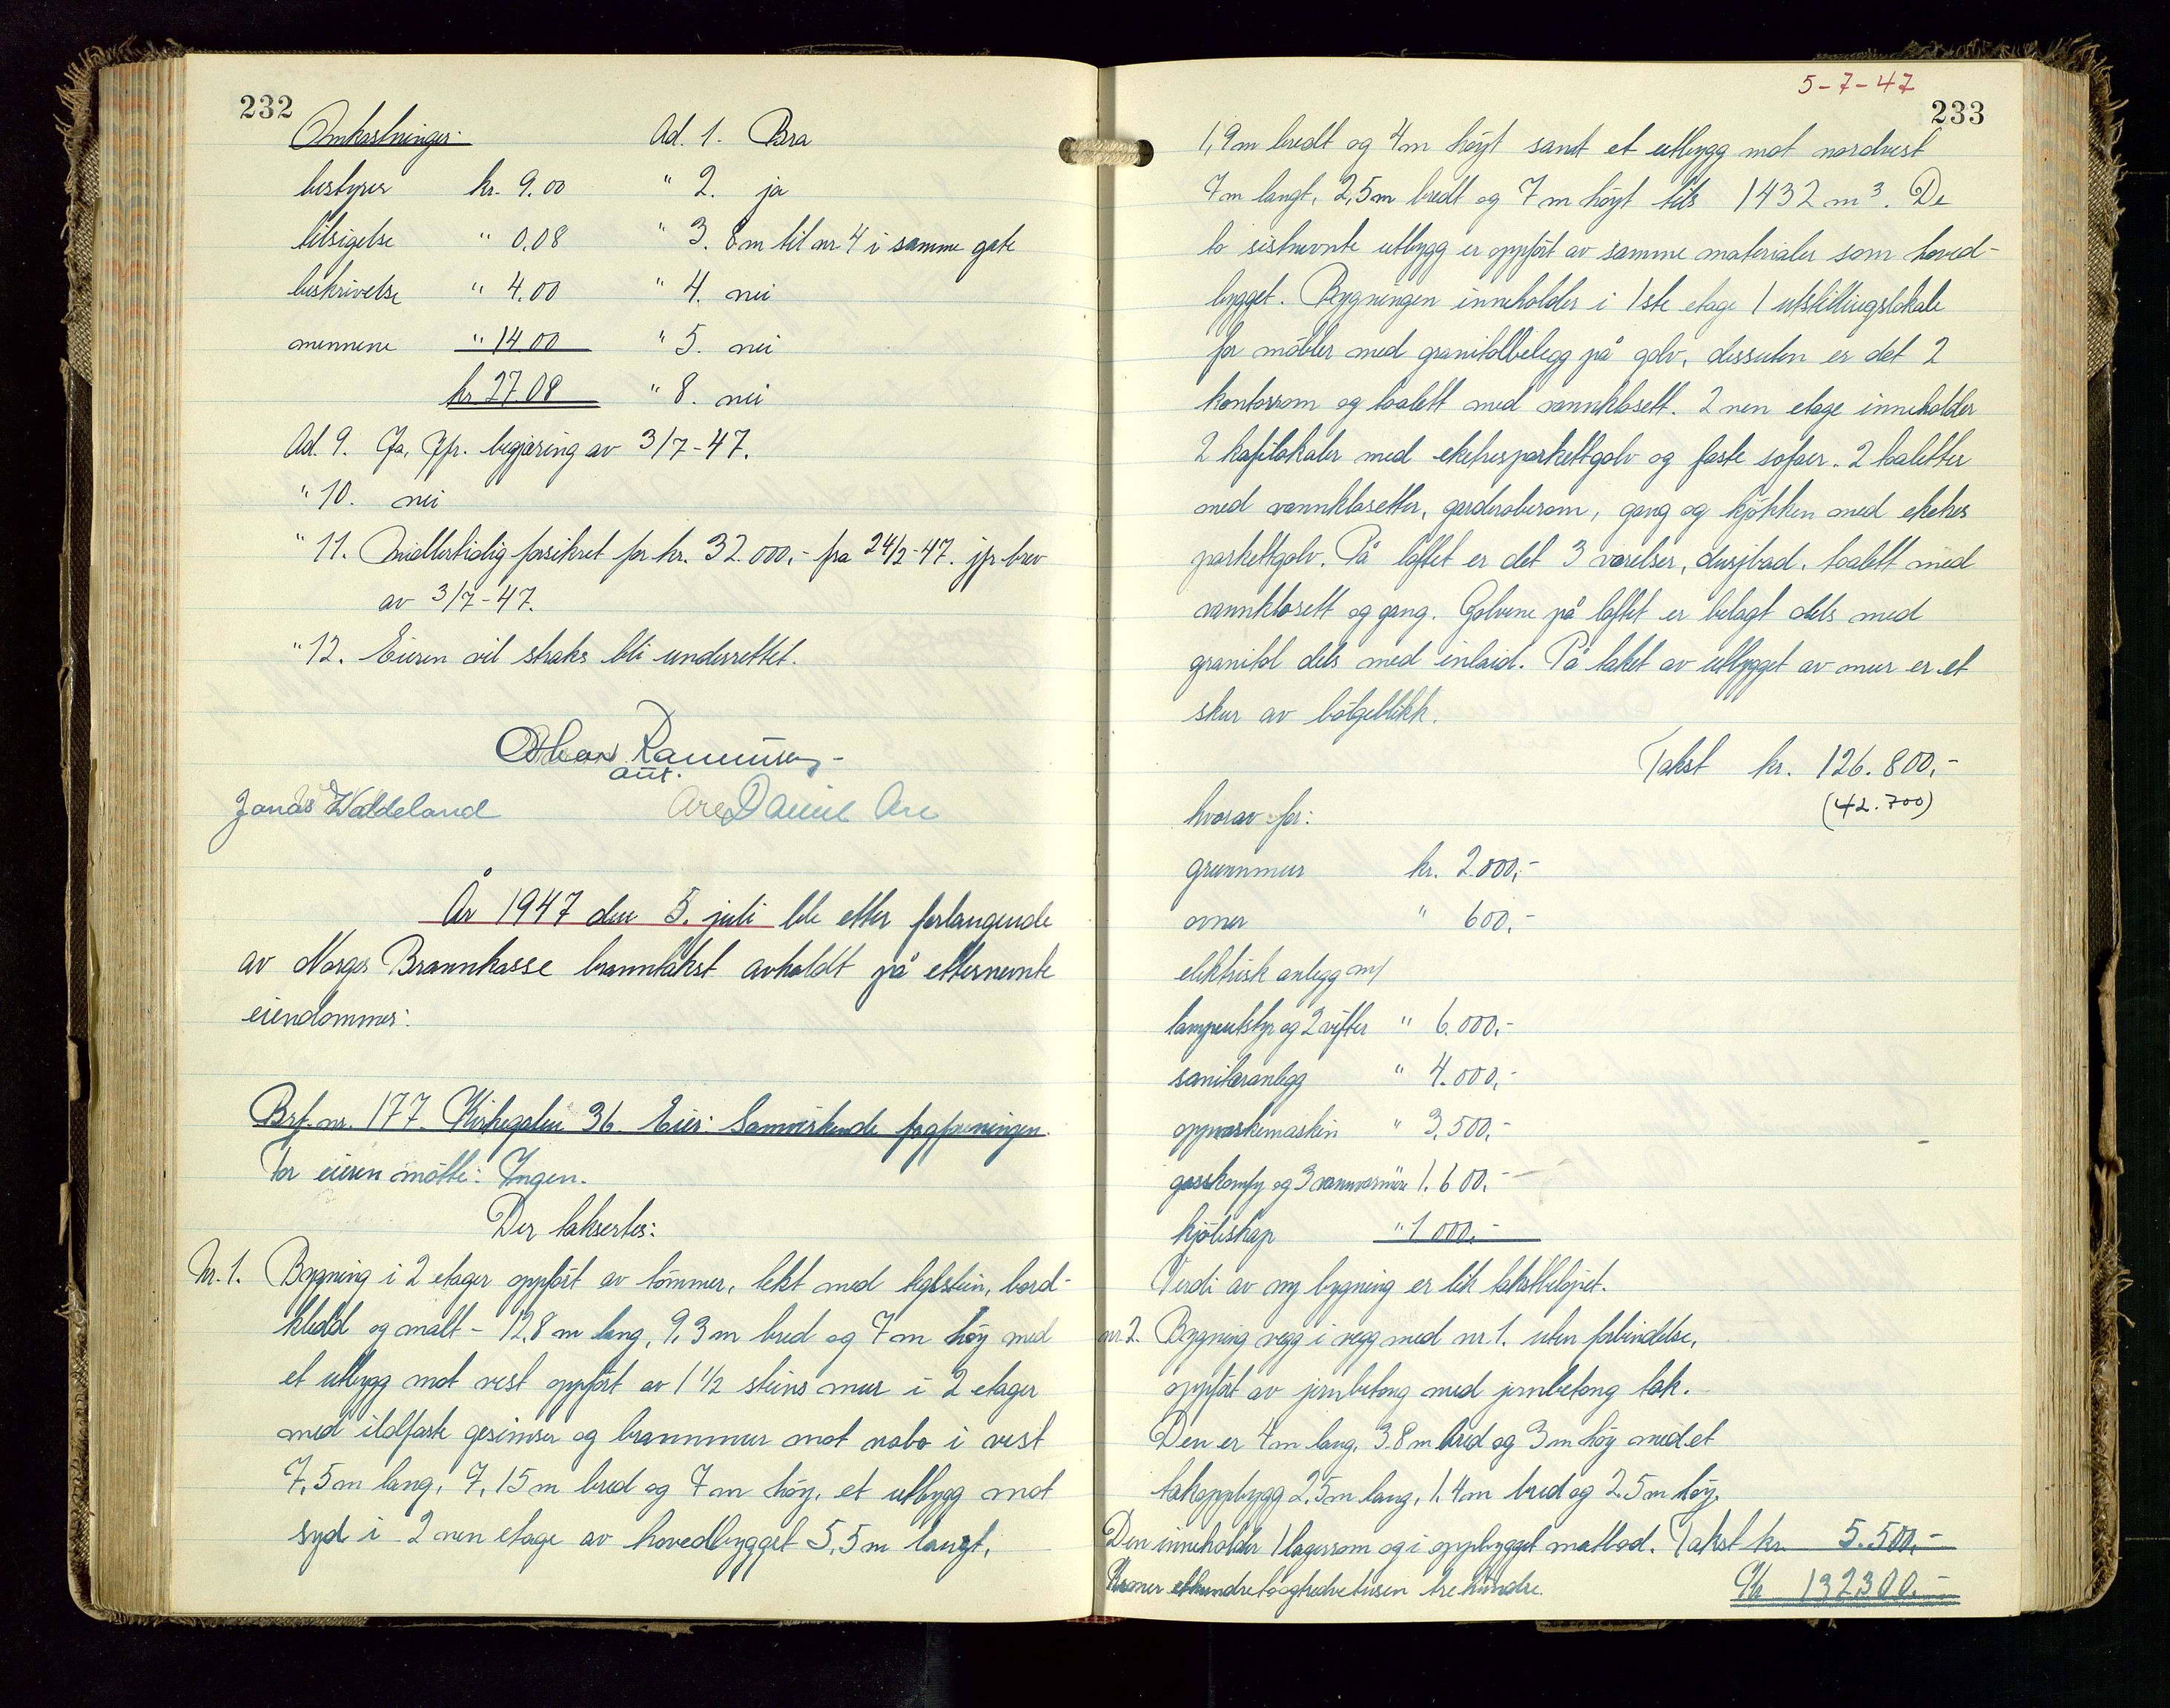 232
Omkostninger:
bestyrer kr. 9.00
tilsigelse " 0.08
beskrivelse " 4.00
mennene " 14 00
kr 27.08
Ad. 1. Bra
" 2. ja
" 3. 8m til nr 4 i samme gate
" 4. nei
" 5. nei
" 8. nei
Ad. 9. Ja, Jfr. begjæring av 3/7-47.
" 10. nei
" 11. Midlertidig forsikret for kr. 32.000,- fra 24/2-47. jfr brev
av 3/7-47.
" 12. Eieren vil straks bli underrettet.
Rasmussen
aut.
Jonas Waldeland
Are Daniel Are
År 1947 den 5. juli ble etter forlangende
av Norges Brannkasse branntakst avholdt på etternevnte
eiendommer:
Brf. nr. 177 Kirkegaten 36 Eier: Samvirkende fagforeninger.
For eieren møtte: Ingen.
Der taksertes:
Nr. 1. Bygning i 2 etager oppført av tømmer, lekt med teglstein, bord-
kledd og malt - 12,8 m lang, 9,3 m bred og 7 m høy med
et utbygg mot vest oppført av 1 1/2 steins mur i 2 etager
med ildfaste gesimser og brannmur mot nabo i vest
7,5 m lang, 7,15 m bred og 7 m høy, et utbygg mot
syd i 2 nen etage av hovedbygget 5,5 m langt,
5-7-47
233
1,9 m bredt og 4 m høyt samt et utbygg mot nordvest
7 m langt, 2,5 m bredt og 7 m høyt tils 1432 m³. De
to sistnevnte utbygg er oppført av samme materialer som hoved-
bygget. Bygningen inneholder i 1ste etage 1 utstillingslokale
for møbler med granitolbelegg på golv, dessuten er det 2
kontorrom og toalett med vannklosett. 2 nen etage inneholder
2 kafélokaler med eketresparkettgolv og faste sofaer. 2 toaletter
med vannklosetter, garderoberom, gang og kjøkken med eketres
parkettgolv. På loftet er det 3 værelser, dusjbad, toalett med
vannklosett og gang. Golvene på loftet er belagt dels med
granitol dels med inlaid. På taket av utbygget av mur er et
skur av bølgeblikk.
Takst kr. 126.800,-
(42.700)
hvorav for:
grunnmur kr. 2.000,-
ovner " 600,-
elektrisk anlegg m/
lampeutstyr og 2 vifter " 6.000,-
sanitæranlegg " 4.000,-
oppvaskemaskin " 3.500,-
gasskomfy og 3 vannvarmere 1.600,-
kjøleskap " 1 000,-
Verdi av ny bygning er lik takstbeløpet.
nr. 2. Bygning vegg i vegg med nr. 1. uten forbindelse,
oppført av jernbetong med jernbetong tak.
Den er 4 m lang, 3.8 m bred og 3 m høy med et
takoppbygg 2,5 m lang, 1,4 m bred og 2.5 m høy.
Den inneholder 1 lagerrom og i oppbygget matbod. Takst kr. 5.500,-
Kroner etthundretoogtredvetusen tre hundre. Kr 132300,-